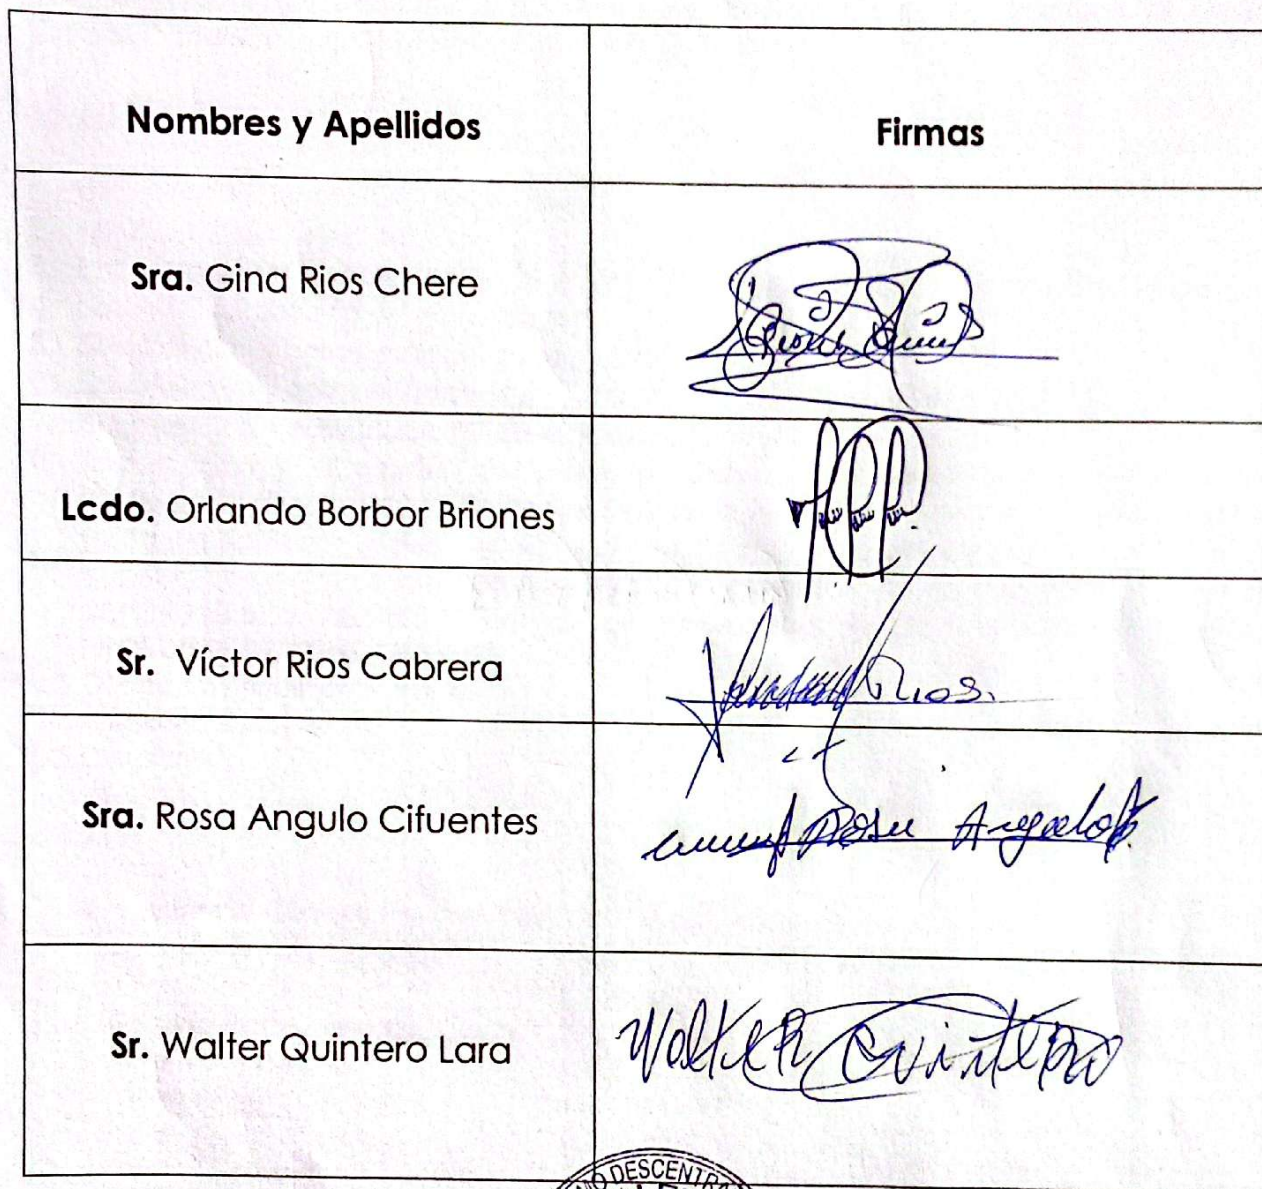 Nombres y Apellidos
Firmas
Sra. Gina Rios Chere
Lcdo. Orlando Borbor Briones
Sr. Víctor Rios Cabrera
Rios.
Sra. Rosa Angulo Cifuentes
Rosa Angulo
Sr. Walter Quintero Lara
Walter Quintero
DESCENTRA